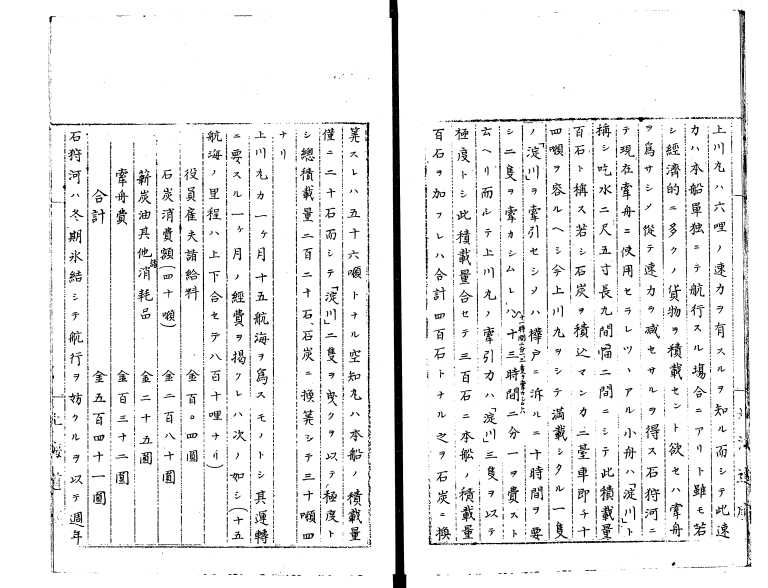 上川丸ハ六哩ノ速力ヲ有スルヲ知ル而シテ此速
力ハ本船單独ニテ航行スル場合ニアリト雖モ若
シ經濟的ニ多クノ貨物ヲ積載セント欲セハ牽舟
ヲ爲サシメ從テ速力ヲ減セサルヲ得ス石狩河ニ
テ現在牽舟ニ使用セラレツヽアル小舟ハ「淀川」ト
稱シ吃水二尺五寸長九間幅二間ニシテ此積載量
百石ト稱ス若シ石炭ヲ積込マンカ二臺車即チ十
四噸ヲ容ルヘシ今上川丸ヲシテ満載シタル一隻
ノ「淀川」ヲ牽引セシメハ樺戸ニ泝ルニ十時間ヲ要
シ二隻ヲ牽カシムレハ十三時間二分一ヲ費スト
云ヘリ而ルテ上川丸ノ牽引力ハ「淀川」三隻ヲ以テ
極度トシ此積載量合セテ三百石ニ本船ノ積載量
百石ヲ加フレハ合計四百石トナル之ヲ石炭ニ換
算スレハ五十六噸トナル空知丸ハ本船ノ積載量
僅ニ二十石而シテ「淀川」二隻ヲ曳クヲ以テ極度ト
シ總積載量二百二十石、石炭ニ換算シテ三十噸四
ナリ
上川丸カ一ヶ月十五航海ヲ爲スモノトシ其運轉
ニ要スル一ヶ月ノ經費ヲ掲クレハ次ノ如シ(十五
航海ノ里程ハ上下合セテ八百十哩ナリ)
役員雇夫諸給料 金百〇四圓
石炭消費額(四十噸) 金二百八十圓
薪炭油其他諸消耗品 金二十五圓
牽舟費 金百三十二圓
合計 金五百四十一圓
石狩河ハ冬期氷結シテ航行ヲ妨クルヲ以テ週年